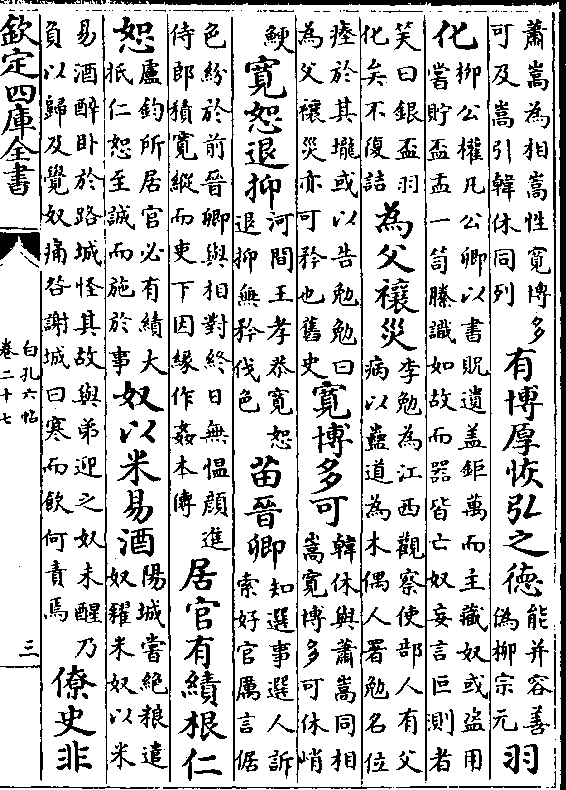 蕭嵩為相嵩性寛博多
可及嵩引韓休同列
有博厚恢弘之德
能并容善
偽柳宗元
羽
化
柳公權凡公卿以書貺遺盖鉅萬而主藏奴或盗用
嘗貯盃盂一笥縢識如故而器皆亡奴妄言叵測者
笑曰銀盃羽
化矣不復詰
為父禳災
李勉為江西觀察使部人有父
病以蠱道為木偶人署勉名位
瘞於其壠或以告勉勉曰
為父禳災亦可矜也舊史
寛博多可
韓休與蕭嵩同相
嵩寛博多可休峭
鯁
寛恕退抑
河間王孝恭寛恕
退抑無矜伐色
苗晉卿
知選事選人訴
索好官厲言倨
色紛於前晉卿與相對終日無愠顔進
侍郎積寛縱而吏下因緣作姦本傳
居官有績根仁
恕
盧鈞所居官必有績大
抵仁恕至誠而施於事
奴以米易酒
陽城嘗絶粮遣
奴糴米奴以米
易酒醉卧於路城怪其故與弟迎之奴未醒乃
負以歸及覺奴痛咎謝城曰寒而飲何責焉
僚史非
欽定四庫全書
白孔六帖
卷二十七
三